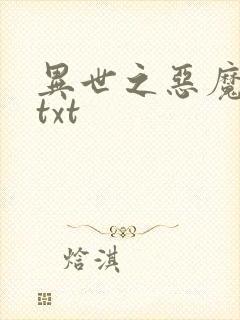 異世之惡魔
txt
焓淇